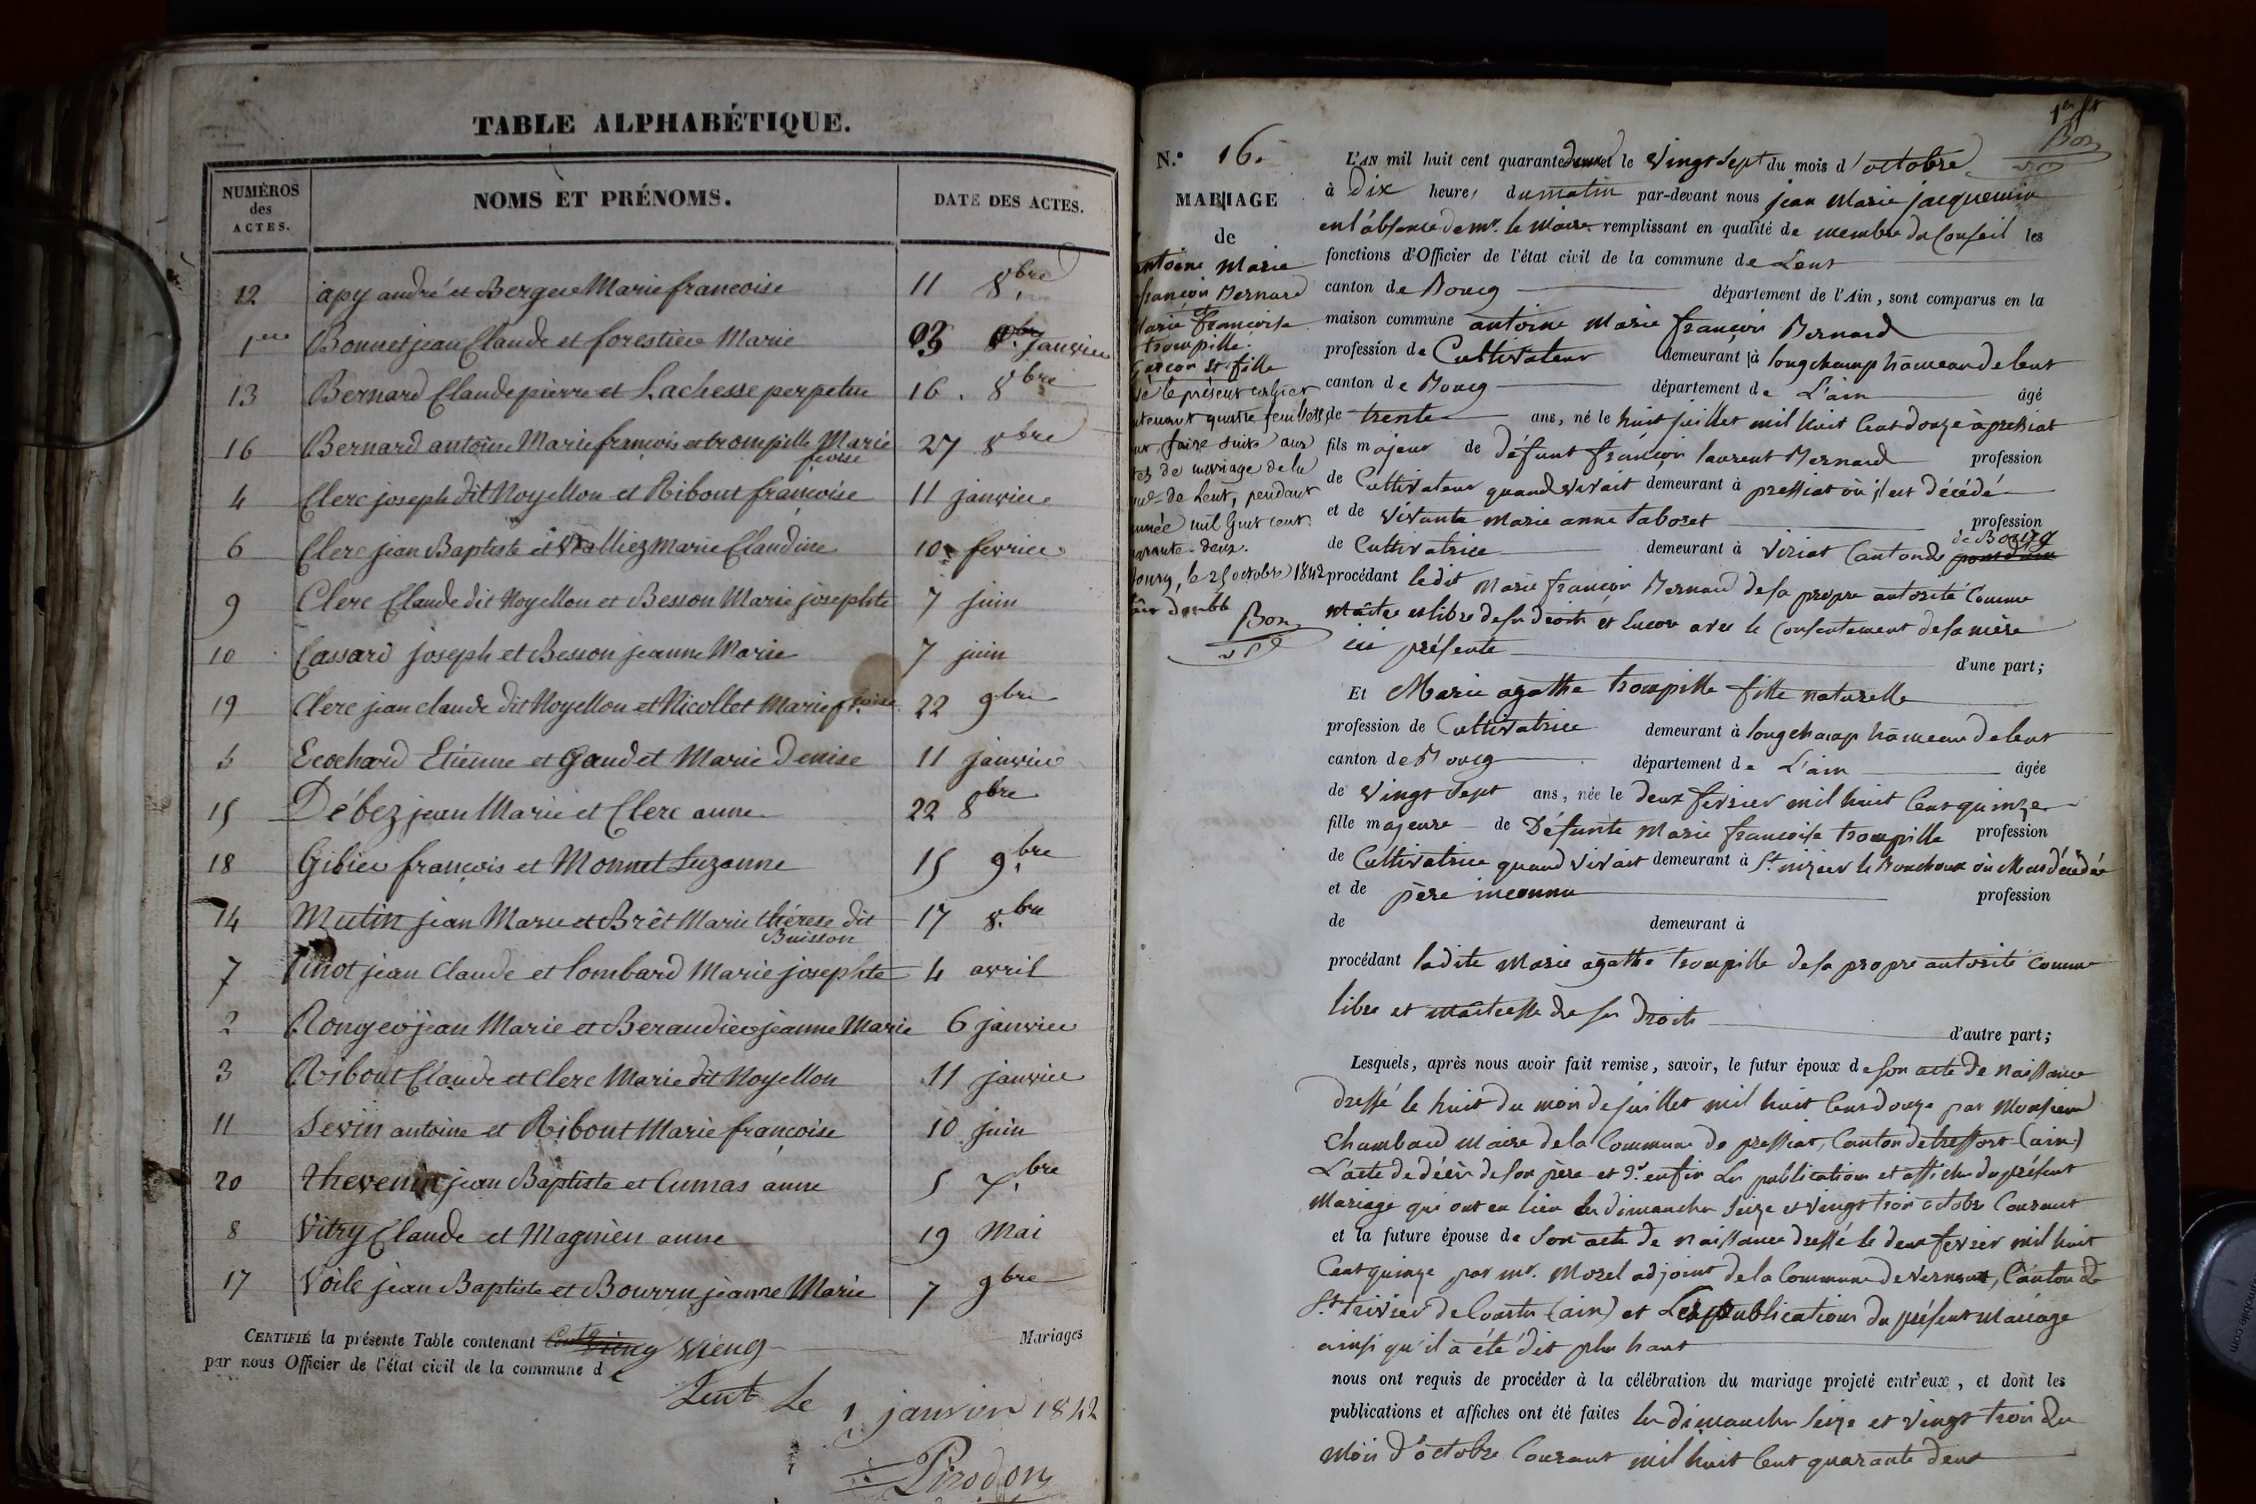 TABLE ALPHABÉTIQUE.
NUMÉROS des ACTES. NOMS ET PRÉNOMS. DATE DES ACTES.
12 apy andré et Berger Marie francoise 11 8.bre
1ere Bonnet jean Claude et forestier Marie 03 Janvier
13 Bernard Claude pierre et Lachesse perpetue 16. 8bre
16 Bernard antoine Marie françois et trompille Marie fcoise 27 8bre
4 Clerc joseph dit Noyellon et Ribout françoise 11 janvier
6 Clerc jean Baptiste et Vialliez Marie Claudine 10 fevrier
9 Clerc Claude dit Noyellon et Besson Marie josephte 7 juin
10 Cassard joseph et Besson jeanne Marie 7 juin
19 Clerc jean claude dit Noyellon et Nicollet Marie fcoise 22 9bre
5 Ecochard Etienne et Gaudet Marie Denise 11 janvier
15 Débez jean Marie et Clerc anne 22 8bre
18 Gibier françois et Monnet Suzanne 15 9.bre
14 Mutin jean Marie et Brêt Marie thérese dit Buisson 17 8.bre
7 Pinot jean Claude et lombard Marie josephte 4 avril
2 Rongeo jean Marie et Beraudier jeanne Marie 6 janvier
3 Ribout Claude et Clerc Marie dit Noyellon 11 janvier
11 Sevin antoine et Ribout Marie françoise 10 juin
20 thevenin jean Baptiste et Cumas anne 5 Xbre
8 Vitry Claude et Magnien anne 19 Mai
17 Voile jean Baptiste et Bourru jeanne Marie 7 9bre
CERTIFIÉ la présente Table contenant vieng Mariages
par nous Officier de l'état civil de la commune de
Lent Le 1 janvier 1842
Pirodon
1er ft
Bon
N.° 16.
MARIAGE
de
antoine Marie
françois Bernard
et
Marie françoise
trompille.
Garçon et fille
le présent cahier
contenant quatre feuillets,
pour faire suite aux
actes de mariage de la
de Lent, pendant
année mil huit cent
quarante-deux.
Bourg, le 25 octobre 1842
Bon
L'AN mil huit cent quarante deux et le vingt sept du mois d'octobre
à dix heures du matin par-devant nous jean Marie jacquemin
en l'absence de mr. le Maire remplissant en qualité de membre du Conseil les
fonctions d'Officier de l'état civil de la commune de Lent
canton de Bourg département de l'Ain, sont comparus en la
maison commune antoine Marie françois Bernard
profession de Cultivateur demeurant à longchamp hameau de lent
canton de Bourg département de L'ain âgé
de trente ans, né le huit juillet mil huit Cent douze à pressiat
fils majeur de défunt françois laurent Bernard profession
de Cultivateur quand vivait demeurant à pressiat où il est décédé
et de vivante Marie anne taboret profession
de Cultivatrice demeurant à viriat Canton de de Bourg
procédant ledit Marie françois Bernard de sa propre autorité Comme
Maître et libre de ses droits et encore avec le Consentement de sa mère
ici présente d'une part;
Et Marie agathe trompille fille naturelle
profession de Cultivatrice demeurant à longchamp hameau de lent
canton de Bourg département de L'ain âgée
de vingt sept ans, née le deux fevrier mil huit Cent quinze
fille majeure de Défunte Marie francoise trompille profession
de Cultivatrice quand vivait demeurant à St. nizier le Bouchoux où elle est décédée
et de père inconnu profession
de demeurant à
procédant ladite Marie agathe trompille de sa propre autorité Comme
libre et maîtresse de ses droits d'autre part;
Lesquels, après nous avoir fait remise, savoir, le futur époux de son acte de naissance
dressé le huit du mois de juillet mil huit Cent douze par Monsieur
Chambard Maire de la Commune de pressiat, Canton de treffort (ain)
L'acte de décès de son père et enfin Les publications et affiches du présent
Mariage qui ont eu lieu les dimanches seize et vingt trois octobre Courant
et la future épouse de son acte de naissance dressé le deux fevrier mil huit
Cent quinze par mr. Morel adjoint de la Commune de vernoux, Canton de
St. trivier de Courtes (ain) et Les publications du présent Mariage
ainsi qu'il a été dit plus haut
nous ont requis de procéder à la célébration du mariage projeté entr'eux, et dont les
publications et affiches ont été faites les dimanches seize et vingt trois du
Mois d'octobre Courant mil huit Cent quarante deux